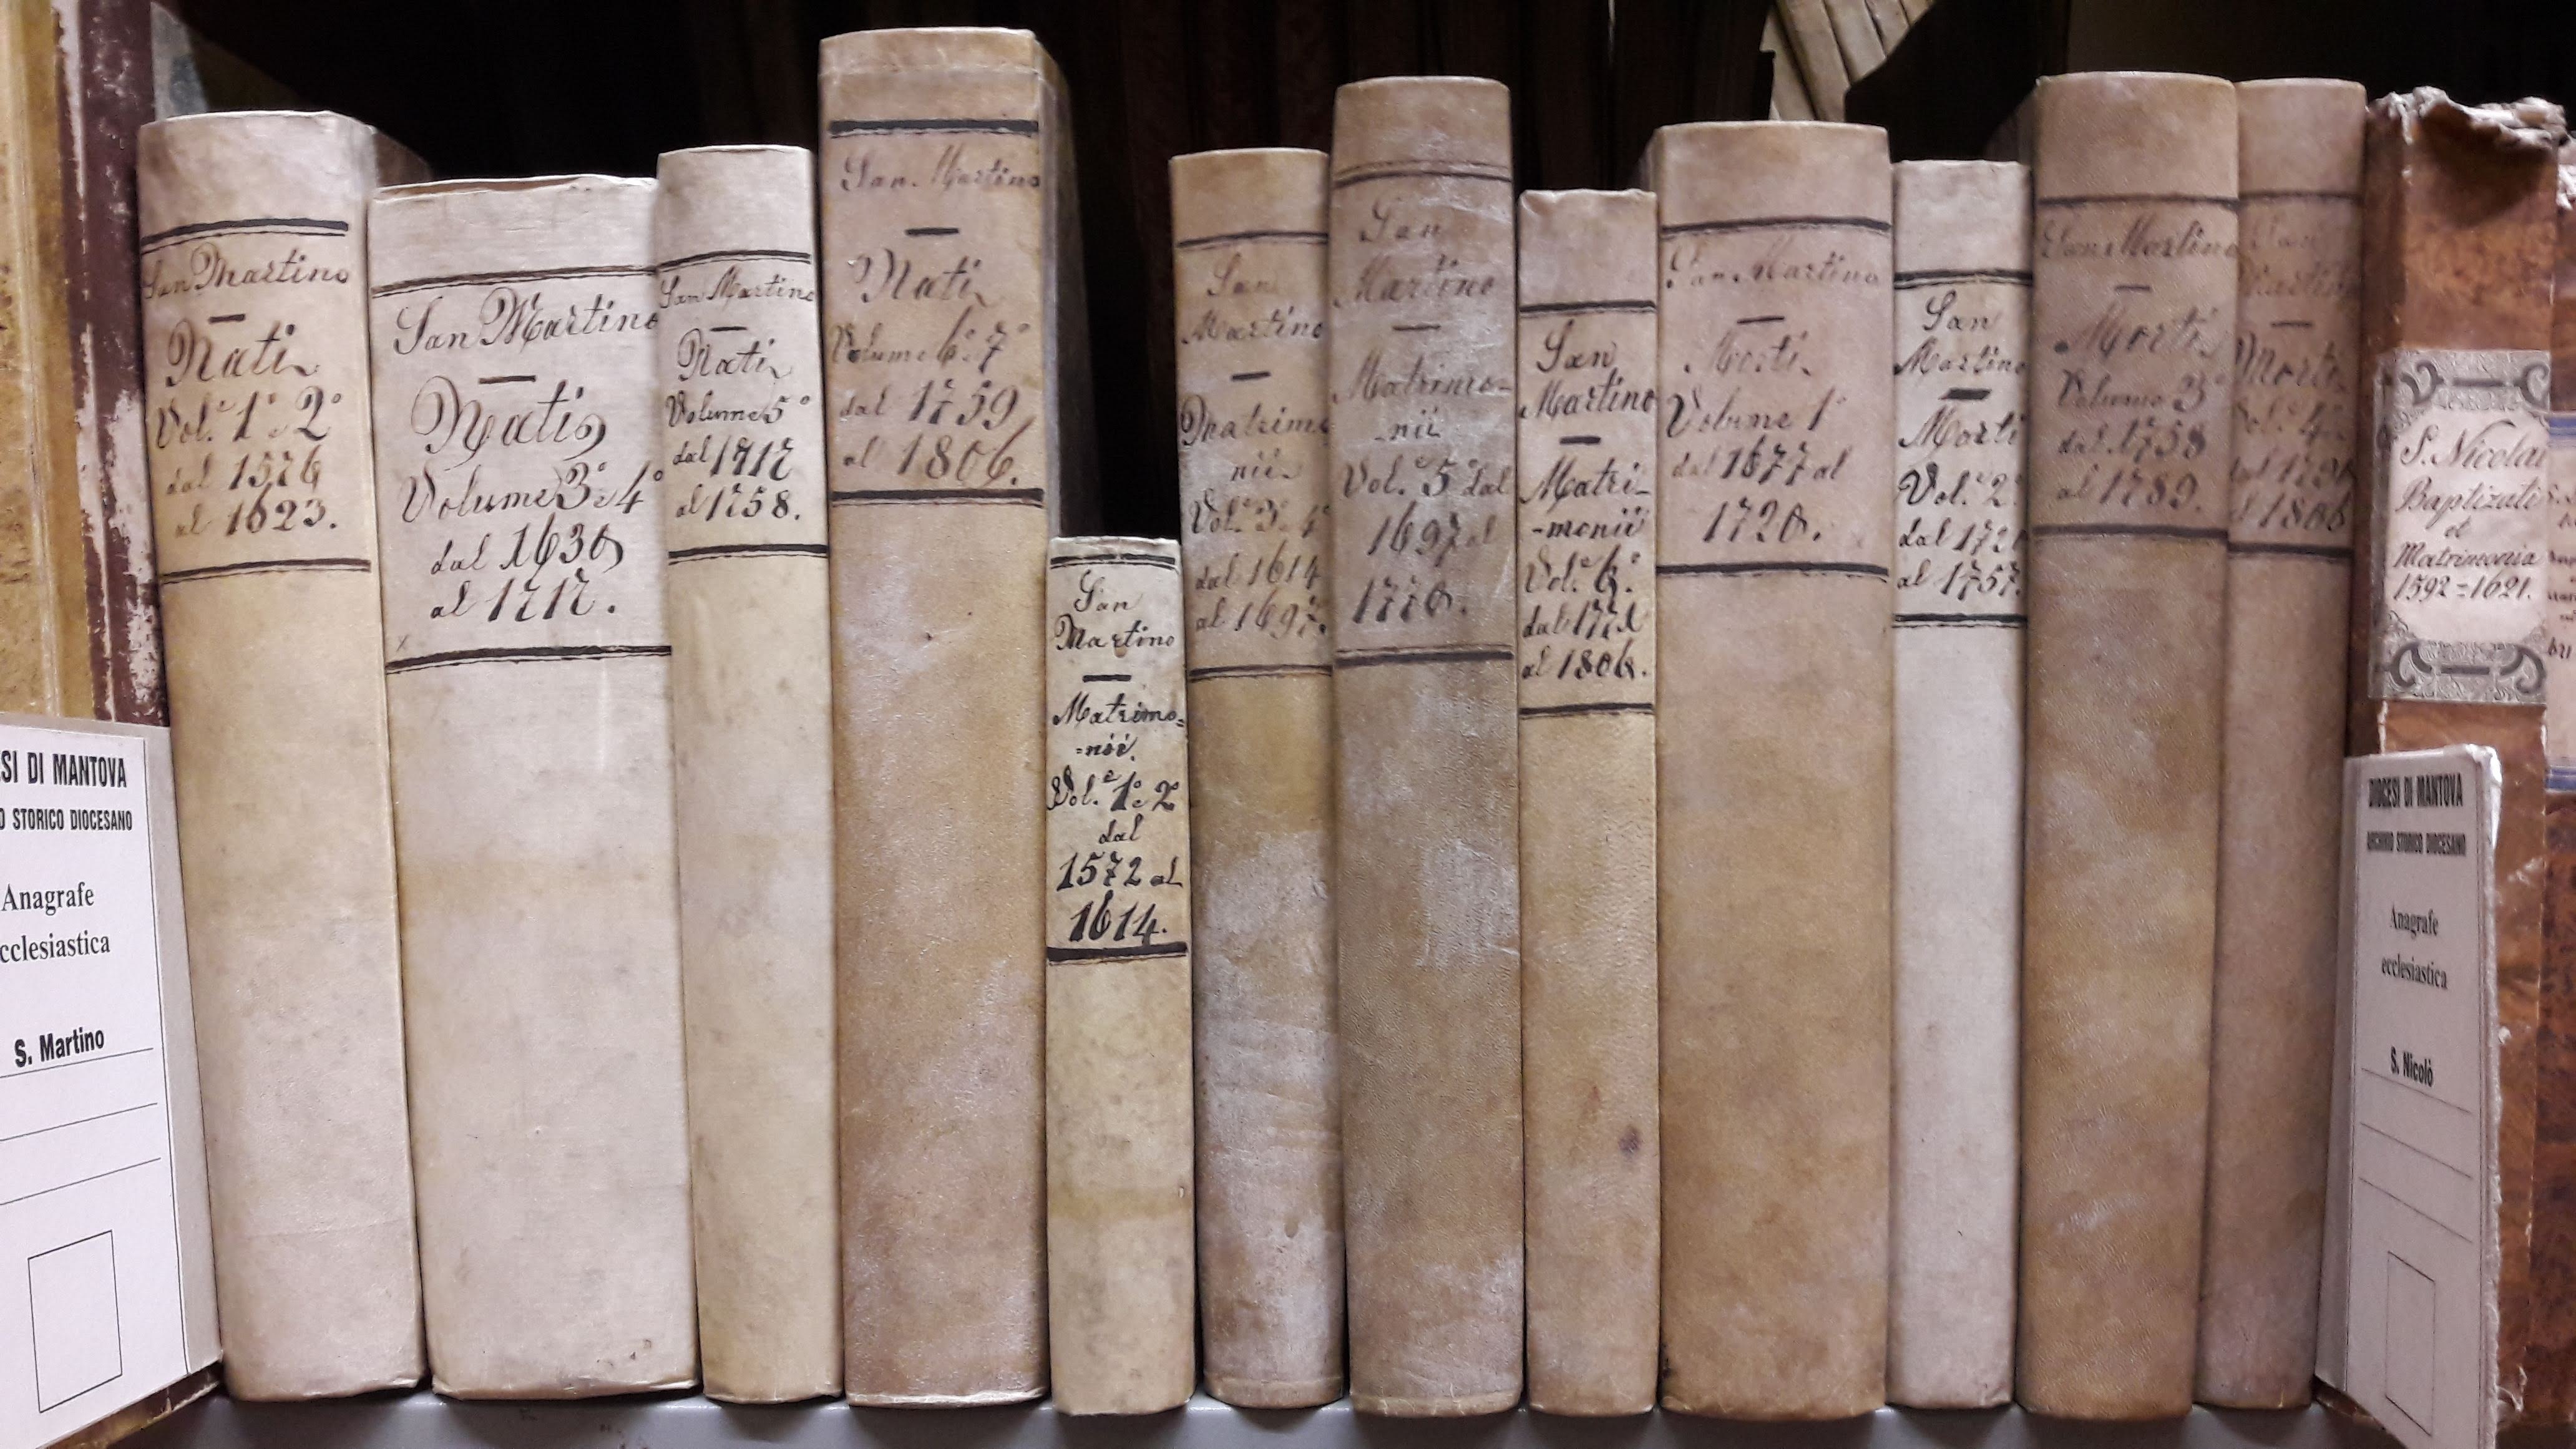 SI DI MANTOVA
O STORICO DIOCESANO
Anagrafe
cclesiastica
S. Martino
San Martino
Nati
Vol.e 1° e 2°
dal 1576
al 1623.
San Martino
Nati
Volume 3° e 4°
dal 1630
al 1717.
San Martino
Nati
Volume 5°
dal 1717
al 1758.
San Martino
Nati
Volume 6° e 7°
dal 1759
al 1806.
San
Martino
Matrimo=
=nii.
Vol.e 1° e 2°
dal
1572 al
1614.
San
Martino
Matrimo
nii
Vol.e 3° e 4°
dal 1614
al 1697.
San
Martino
Matrimo-
-nii
Vol.e 5° dal
1697 al
1770.
San
Martino
Matri-
-monii
Vol.e 6°.
dal 1771
al 1806.
San Martino
Morti
Volume 1°
dal 1677 al
1720.
San
Martino
Morti
Vol.e 2°
dal 1721
al 1757.
San Martino
Morti
Volume 3°
dal 1758
al 1789.
San
Martino
Morti
Vol.e 4°
al 1806
S. Nicolai
Baptizati
et
Matrimonia
1592=1621.
DIOCESI DI MANTOVA
ARCHIVIO STORICO DIOCESANO
Anagrafe
ecclesiastica
S. Nicolò